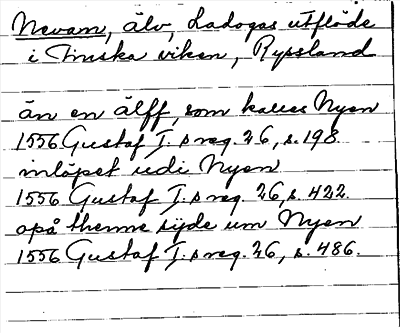 Nevam, älv, Ladogas utflöde
i Finska viken, Ryssland
än en älff, som kalles Nyen
1556 Gustaf I.s reg. 26, s. 198.
inlöpet udi Nyen
1556 Gustaf I.s reg. 26, s. 422.
opå thenne sijde um Nyen
1556 Gustaf I.s reg. 26, s. 486.